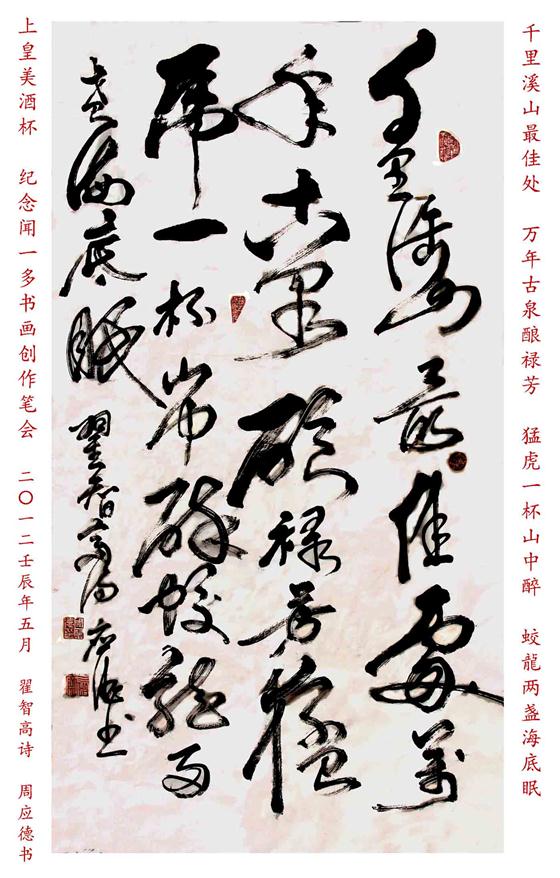 千里溪山最佳处 万年古泉酿禄芳 猛虎一杯山中醉 蛟龍两盏海底眠
千里溪山最佳處萬
年古泉酿禄芳猛
虎一杯山中醉蛟龍两
盏海底眠 翟智高詩 应德书
上皇美酒杯 纪念闻一多书画创作笔会 二〇一二壬辰年五月 翟智高诗 周应德书